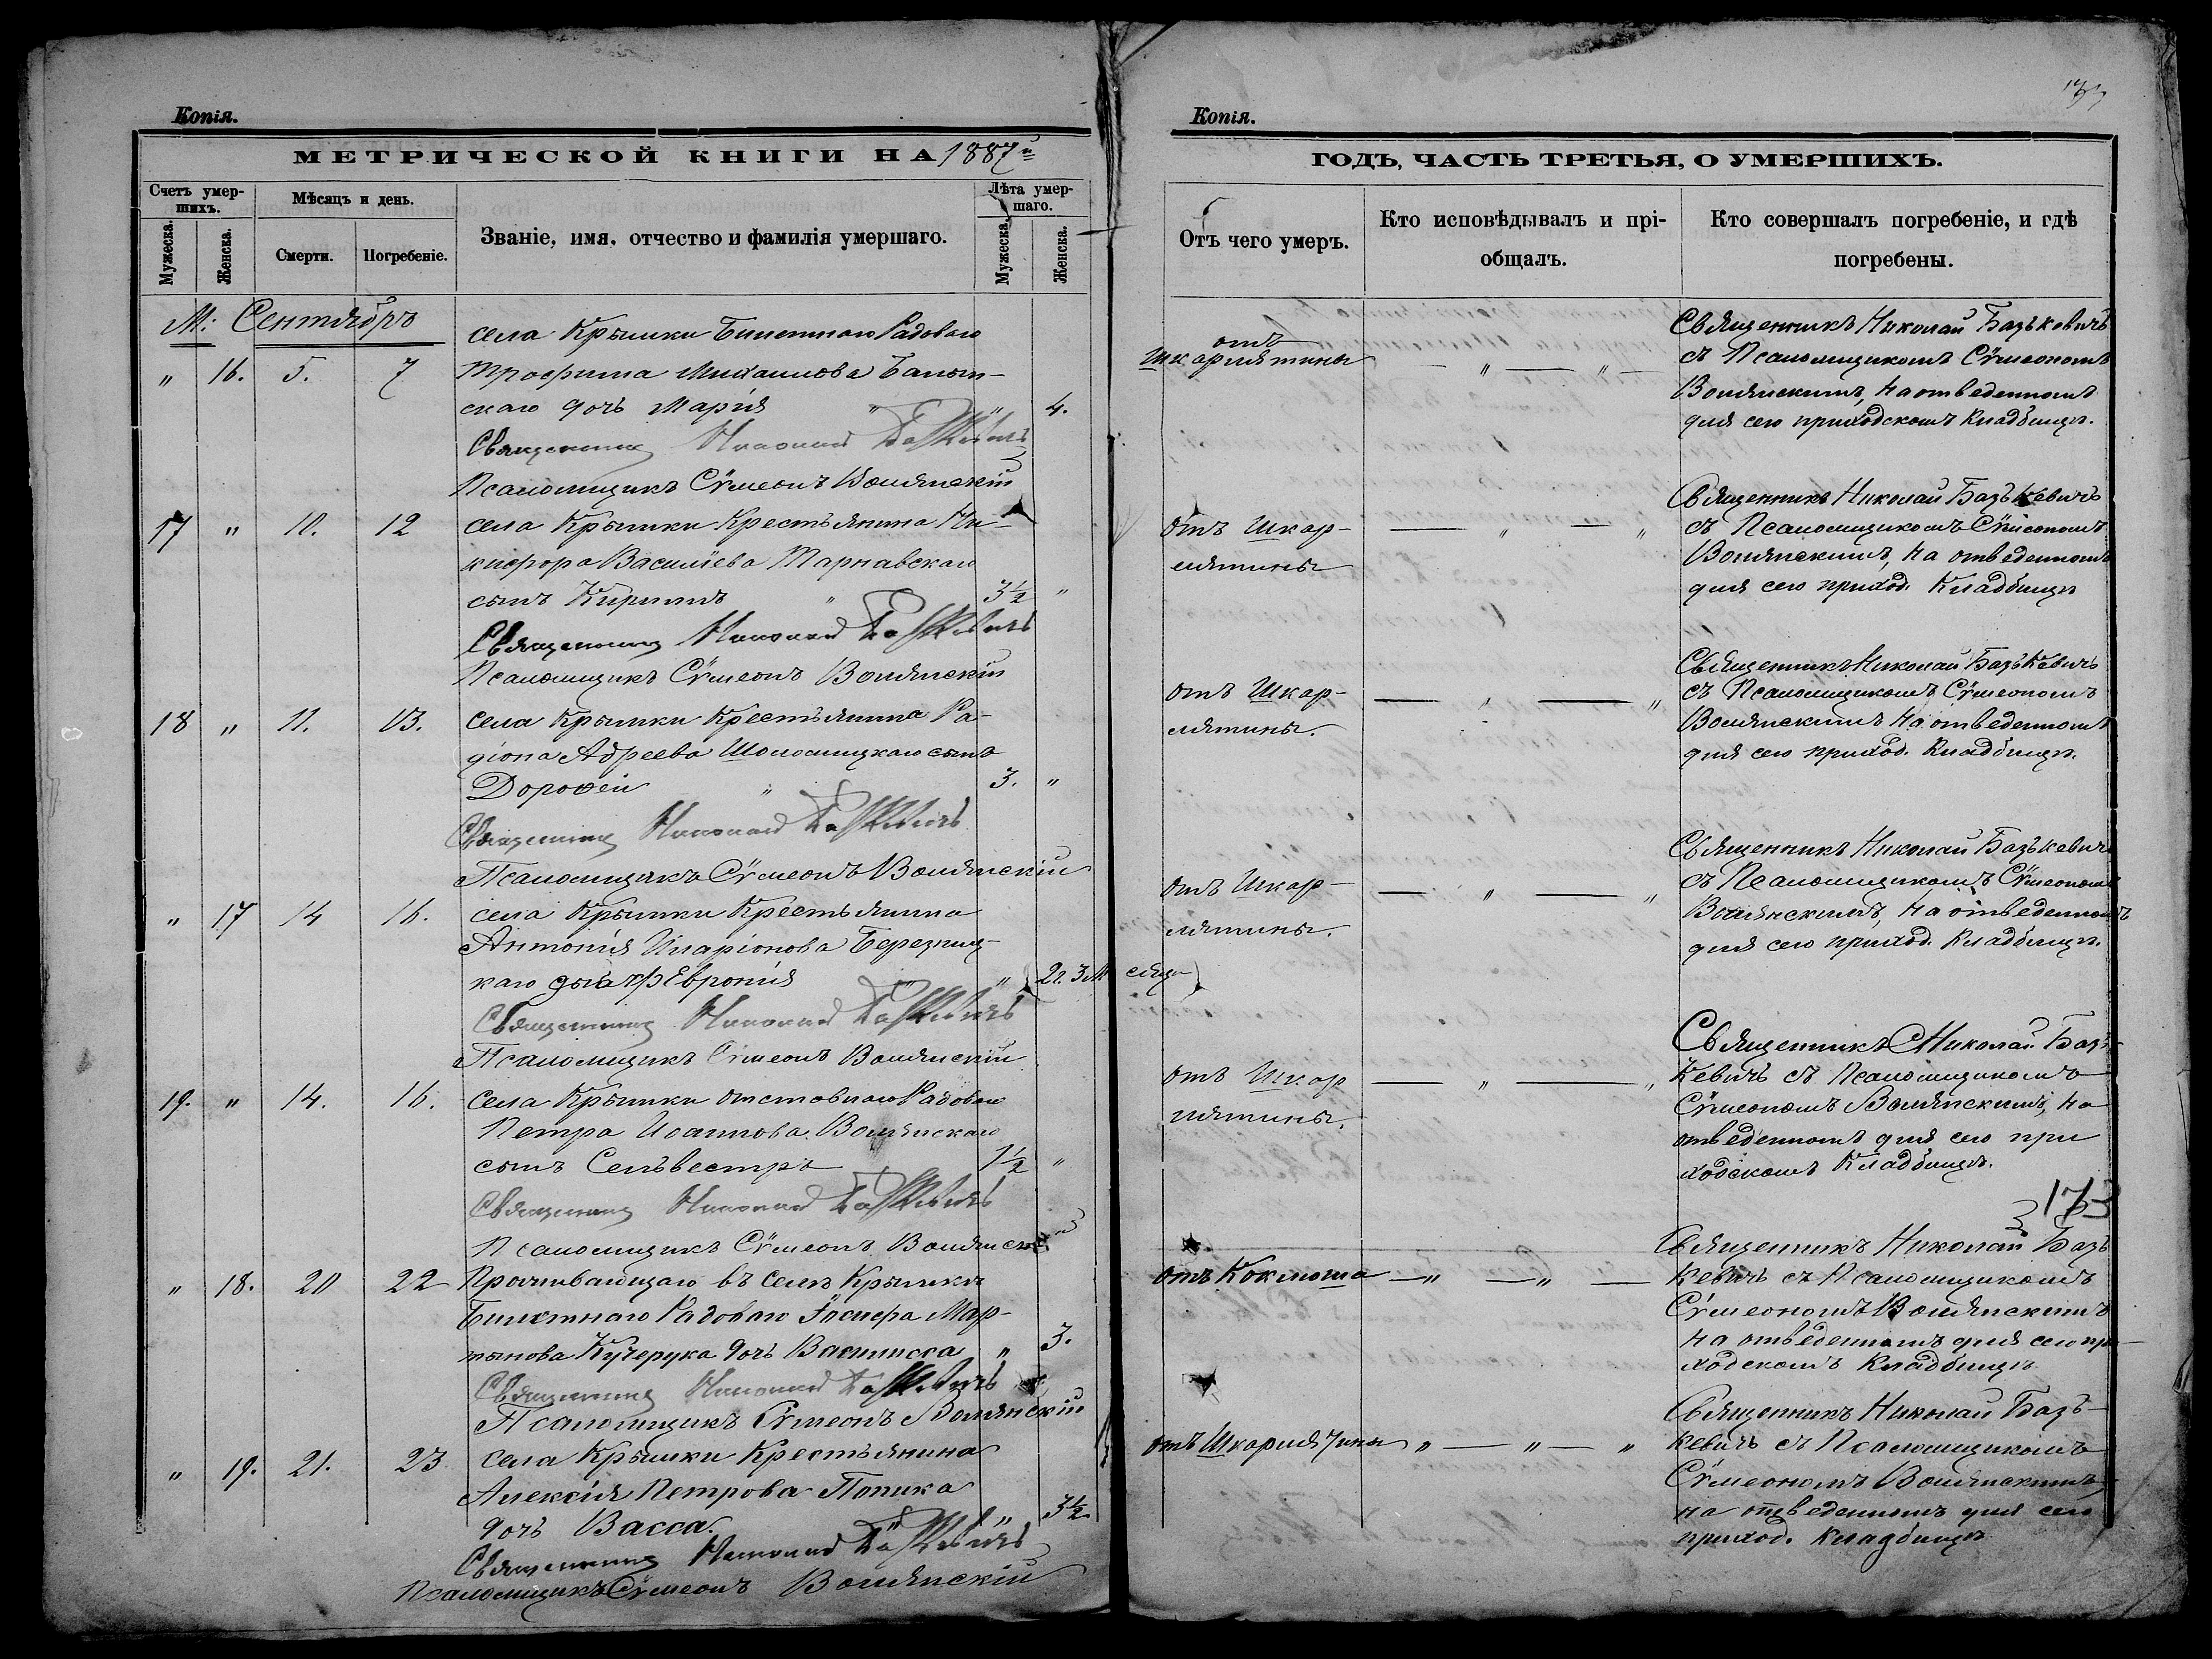 Копія.
МЕТРИЧЕСКОЙ КНИГИ НА 1887й
Счетъ умер-
шихъ.
Мѣсяцъ и день.
Званіе, имя, отчество и фамилія умершаго.
Лѣта умер-
шаго.
Мужеска.
Женска.
Смерти.
Погребеніе.
Мужеска.
Женска.
М: Сентябрь
села Крымки Билетнаго Рядоваго
" 16. 5. 7 Трофима Михаилова
скаго дочь Марія " " 4.
Священникъ Николай Базькевичъ
Псаломщикъ Сѵмеонъ Волянскій
17 " 10. 12 села Крымки Крестьянина Ни-
кифора Василіева Тарнавскаго
сынъ Кириллъ " 3½ "
Священникъ Николай Базькевичъ
Псаломщикъ Сѵмеонъ Волянскій
18 " 11. 13. села Крымки Крестьянина Ра-
діона Адреева Шоломицкаго сынъ
Дорофей " 3. "
Священникъ Николай Базькевичъ
Псаломщикъ Сѵмеонъ Волянскій
" 17 14 16. села Крымки Крестьянина
Антонія Иларіонова Березниц-
каго дочь Евронія " " 2г. 3 Мѣсяца
Священникъ Николай Базькевичъ
Псаломщикъ Сѵмеонъ Волянскій
19. " 14. 16. села Крымки отставнаго Рядоваго
Петра Иоаннова Волянскаго
сынъ Сельвестръ 1½ "
Священникъ Николай Базькевичъ
Псаломщикъ Сѵмеонъ Волянскій
" 18. 20 22 Проживающаго въ селѣ Крымки
Билетнаго Рядоваго Іосифа Мар-
тынова Кучерука дочь Василисса " 3.
Священникъ Николай Базькевичъ
Псаломщикъ Сѵмеонъ Волянскій
" 19. 21. 23 села Крымки Крестьянина
Алексія Петрова Попика
дочь Васса. " " 3½
Священникъ Николай Базькевичъ
Псаломщикъ Сѵмеонъ Волянскій
Копія.
ГОДЪ, ЧАСТЬ ТРЕТЬЯ, О УМЕРШИХЪ.
Отъ чего умеръ.
Кто исповѣдывалъ и прі-
общалъ.
Кто совершалъ погребеніе, и гдѣ
погребены.
отъ
Шкарлятины — " — " —
Священникъ Николай Базькевичъ
съ Псаломщикомъ Сѵмеономъ
Волянскимъ, на отведенномъ
для сего приходскомъ Кладбищѣ.
отъ Шкар-
лятины — " — "
Священникъ Николай Базькевичъ
съ Псаломщикомъ Сѵмеономъ
Волянскимъ, на отведенномъ
для сего приход. Кладбищѣ
отъ Шкар-
лятины. — " — "
Священникъ Николай Базькевичъ
съ Псаломщикомъ Сѵмеономъ
Волянскимъ на отведенномъ
для сего приход. Кладбищѣ.
отъ Шкар-
лятины. — " — "
Священникъ Николай Базькевичъ
съ Псаломщикомъ Сѵмеономъ
Волянскимъ, на отведенномъ
для сего приход. Кладбищѣ.
отъ Шкар
лятины. — " — "
Священникъ Николай Базь-
кевичъ съ Псаломщикомъ
Сѵмеономъ Волянскимъ, на
отведенномъ для сего при
ходскомъ Кладбищѣ.
173
отъ Коклюша — " — " —
Священникъ Николай Базь
кевичъ съ Псаломщикомъ
Сѵмеономъ Волянскимъ
на отведенномъ для сего при-
ходскомъ Кладбищѣ
отъ Шкарлятины " — " — "
Священникъ Николай Базь-
кевичъ съ Псаломщикомъ
Сѵмеономъ Волянскимъ
на отведенномъ для сего
приход. Кладбищѣ